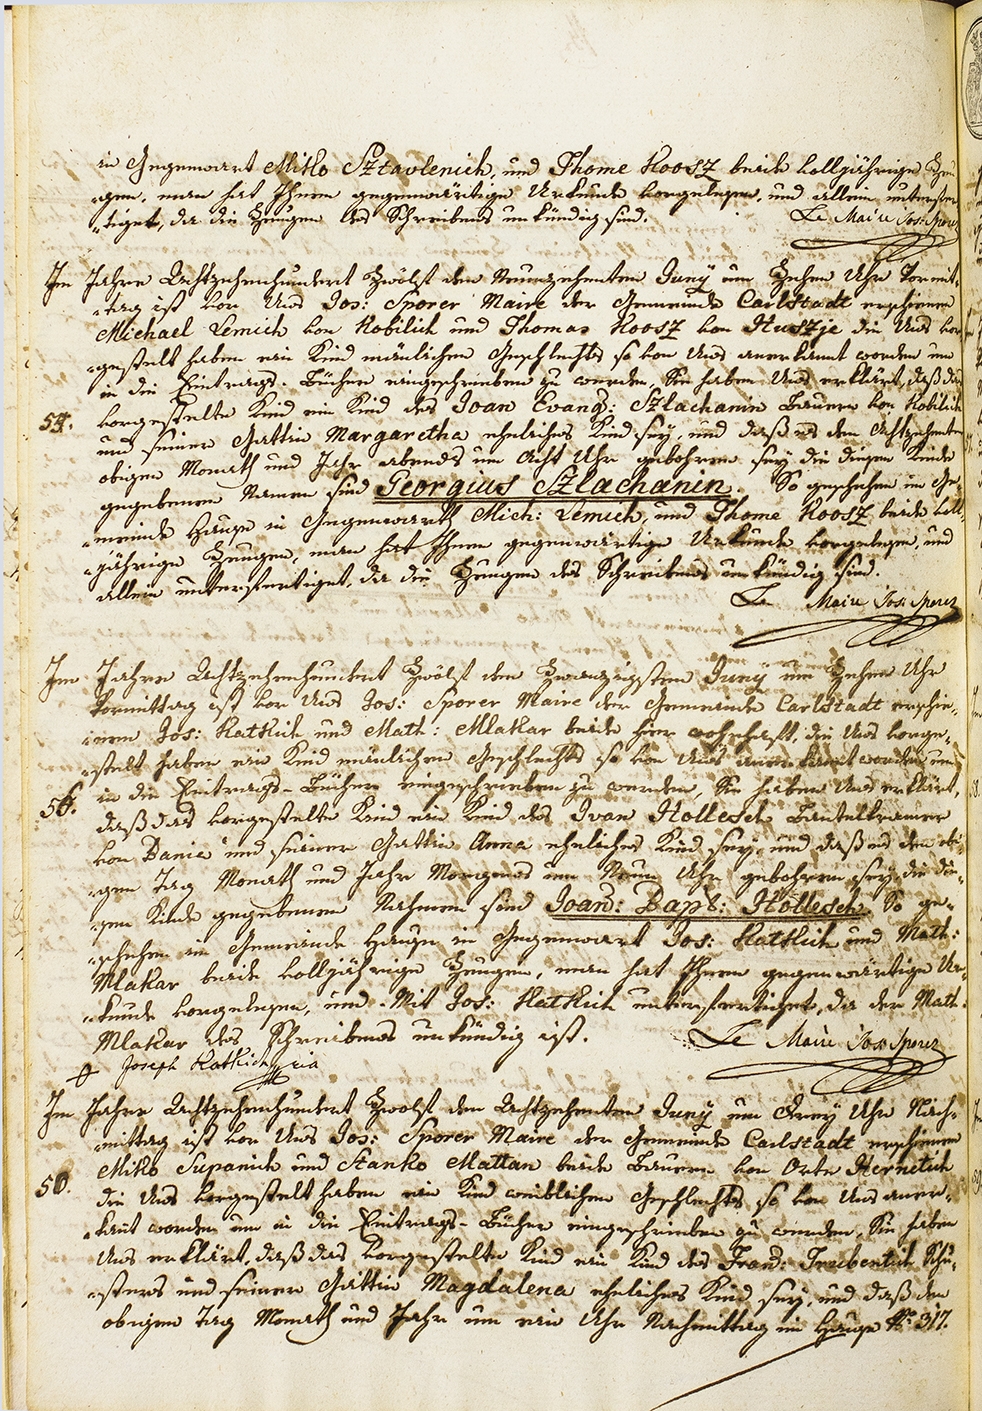 in Gegenwart Mitko Sztavlenich, und Thome Koosz beide volljährige Zeu
„gen, man hat Ihnen gegenwärtige Urkunde vorgelesen, und allein unterfer
„tiget, da die Zeugen des Schreibens unkündig sind. Le Maire Jos: Sporer
Im Jahre Achtzehenhundert Zwölf den Neunzehenten Juny um Zehen Uhr Vormit„
„tag ist vor Uns Jos: Sporer Maire der Gemeinde Carlstadt erschienen
Michael Lemich von Kobilich und Thomas Koosz von Huszje die Uns vor
„gestelt haben ein Kind mänlichen Geschlechts so von Uns anerkannt worden um
in die Eintrags-Bücher eingeschrieben zu werden, Sie haben Uns erklärt, daß das
54. vorgestelte Kind ein Kind des Joan Evang: Szlachanin Bauern von Kobilich
und seiner Gattin Margaretha eheliches Kind sey, und daß es den Achtzehenten
obigen Monath und Jahr abends um Acht Uhr gebohren sey die diesen Kinde
gegebenen Namen sind Georgius Szlachanin. So geschehen im Ge„
„meinde Hause in Gegenwarth Mich: Lemich, und Thome Koosz beide voll„
„jährige Zeugen, man hat Ihnen gegenwärtige Urkunde vorgelesen, und
allein unterfertiget, da die Zeugen des Schreibens unkündig sind.
Le Maire Jos: Sporer
Im Jahre Achtzehenhundert Zwölf den Zwanzigsten Juny um Zehen Uhr
Vormittag ist vor Uns Jos: Sporer Maire der Gemeinde Carlstadt erschie„
„nen Jos: Katkich und Math: Mlakar beide hier wohnhaft, die Uns vorge„
„stelt haben ein Kind mänlichen Geschlechts so von Uns anerkant worden um
55. in die Eintrags-Bücher eingeschrieben zu werden, Sie haben Uns erklärt,
daß das vorgestelte Kind ein Kind des Ivan Hollesch Bantelkramer
von Dania und seiner Gattin Anna eheliches Kind sey, und daß es den obi
„gen Tag Monath und Jahr Morgens um Neun Uhr gebohren sey, die die„
„sen Kinde gegebenen Nahmen sind Joan: Bapt: Hollesch. So ge„
„schehen im Gemeinde Hause in Gegenwart Jos: Katkich und Math:
Mlakar beide volljährige Zeugen, man hat Ihnen gegenwärtige Ur„
„kunde vorgelesen, und Mit Jos: Katkich unterfertiget, da der Math:
Mlakar des Schreibens unkündig ist. Le Maire Jos: Sporer
Joseph Katkich
Im Jahre Achtzehenhundert Zwölf den Achtzehenten Juny um Drey Uhr Nach„
„mittag ist vor Uns Jos: Sporer Maire der Gemeinde Carlstadt erschienen
56. Mikо Supanich und Stanko Mattan beide Bauern von Orte Hernetich
die Uns vorgestelt haben ein Kind weiblichen Geschlechts, so von Uns aner„
„kant worden um in die Eintrags-Bücher eingeschrieben zu werden, Sie haben
Uns erklärt, daß das vorgestelte Kind ein Kind des Fran: Trubentich Schu„
„sters und seiner Gattin Magdalena eheliches Kind sey, und daß den
obigen Tag Monath und Jahr um ein Uhr Nachmittag im Hause No: 317.